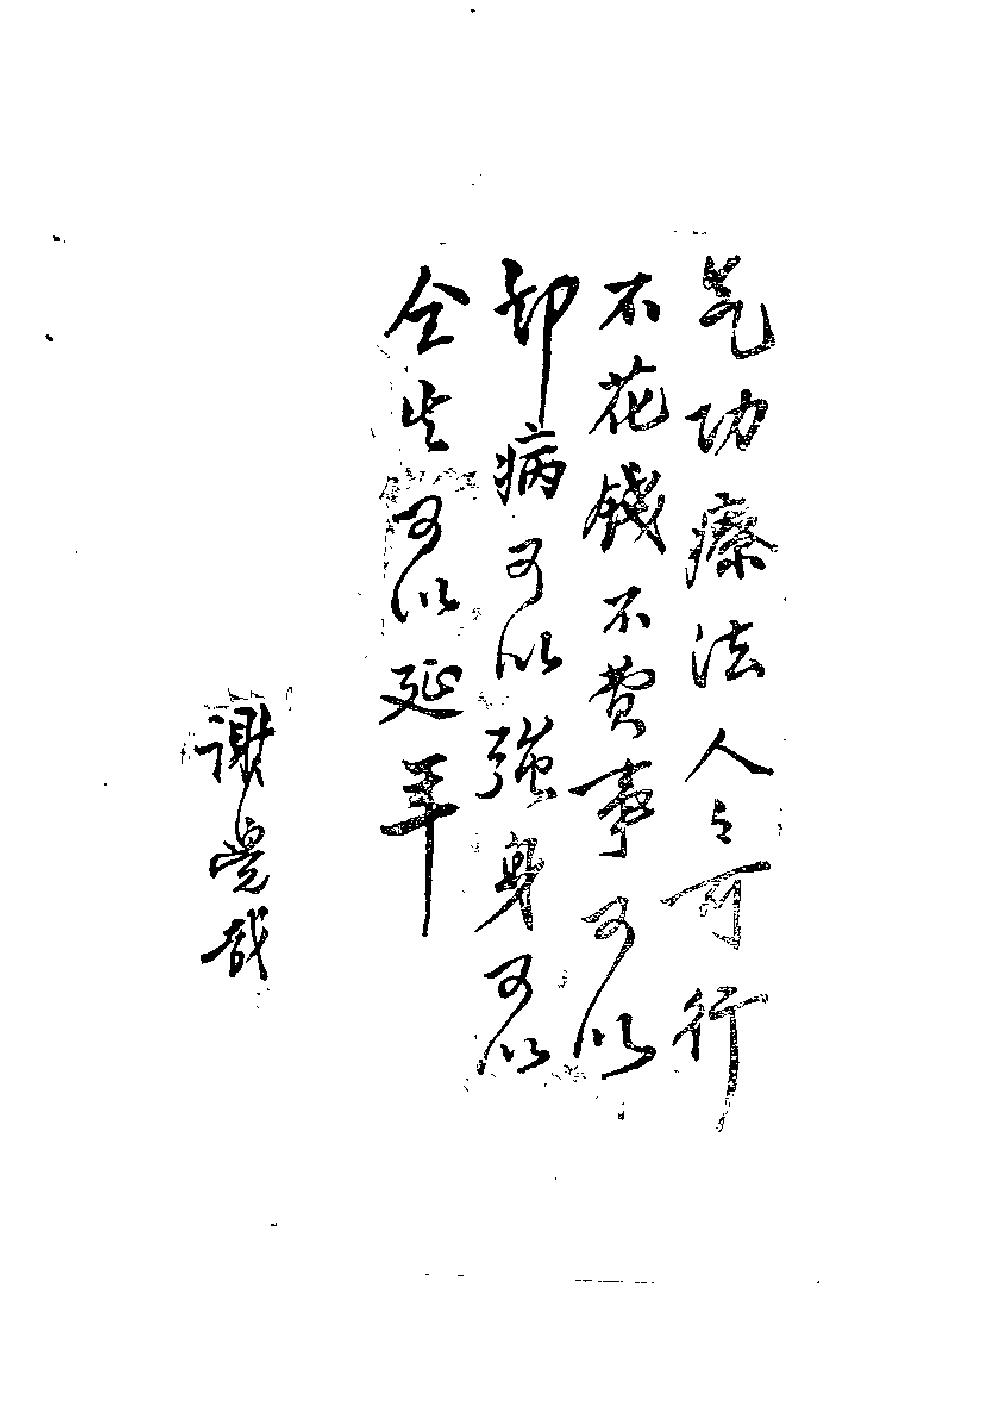 气功療法人々可行
不花錢不費事可以
却病可以強身可以
全生可以延年
谢覺哉